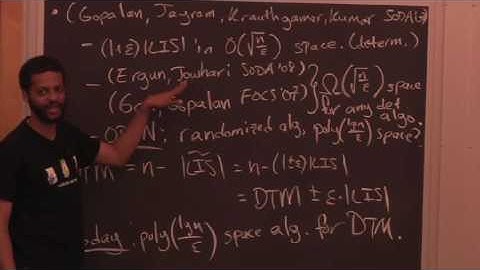 • (Gopalan, Jayram, Krauthgamer, Kumar SODA'07)
- (1±ε)|LIS| in Õ(√(n/ε)) space. (determ.)
- (Ergun, Jowhari SODA'08)
(Gál, Gopalan FOCS'07) } Ω(√(n/ε)) space for any det algo.
- OPEN: randomized alg, poly(lgn/ε) space?
DTM = n - |LIS| = n-(1±ε)|LIS|
= DTM ± ε·|LIS|
Today: poly(lgn/ε) space alg. for DTM.